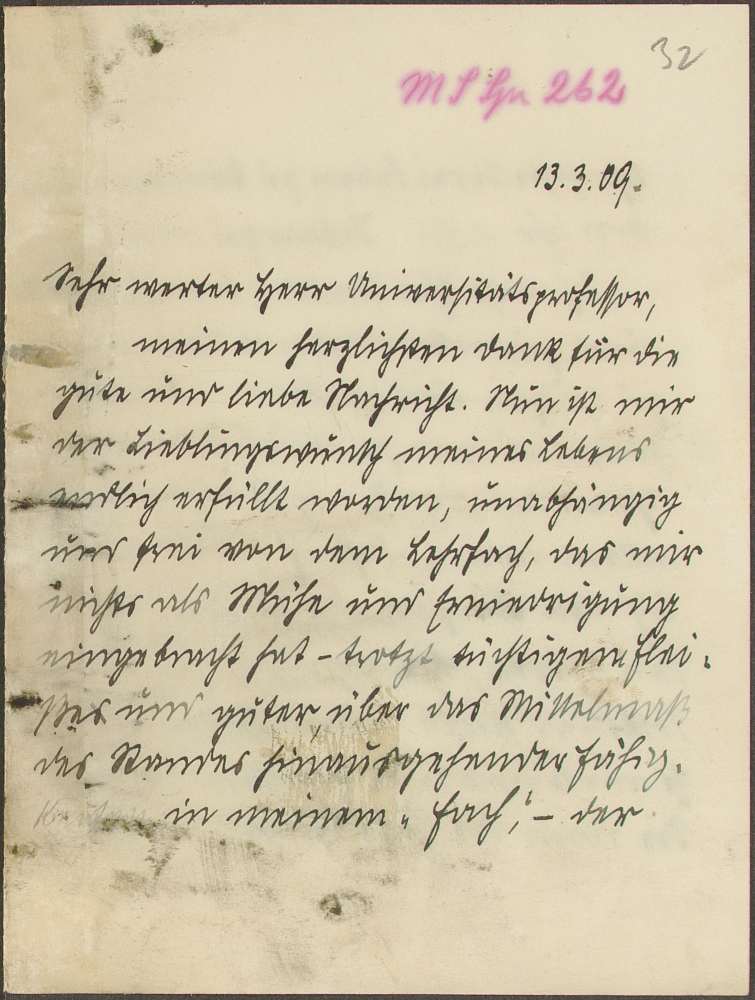 32
MS Lgn 262
13.3.09.
Sehr werter Herr Universitätsprofessor,
meinen herzlichsten Dank für die
gute und liebe Nachricht. Nun ist mir
der Lieblingswunsch meines Lebens
endlich erfüllt worden, unabhängig
und frei von dem Lehrfach, das mir
nichts als Mühe und Erniedrigung
eingebracht hat – trotzt tüchtigem Flei-
ßes und guter über das Mittelmaß
des Standes hinausgehender Fähig-
keiten in meinem „Fach", – der